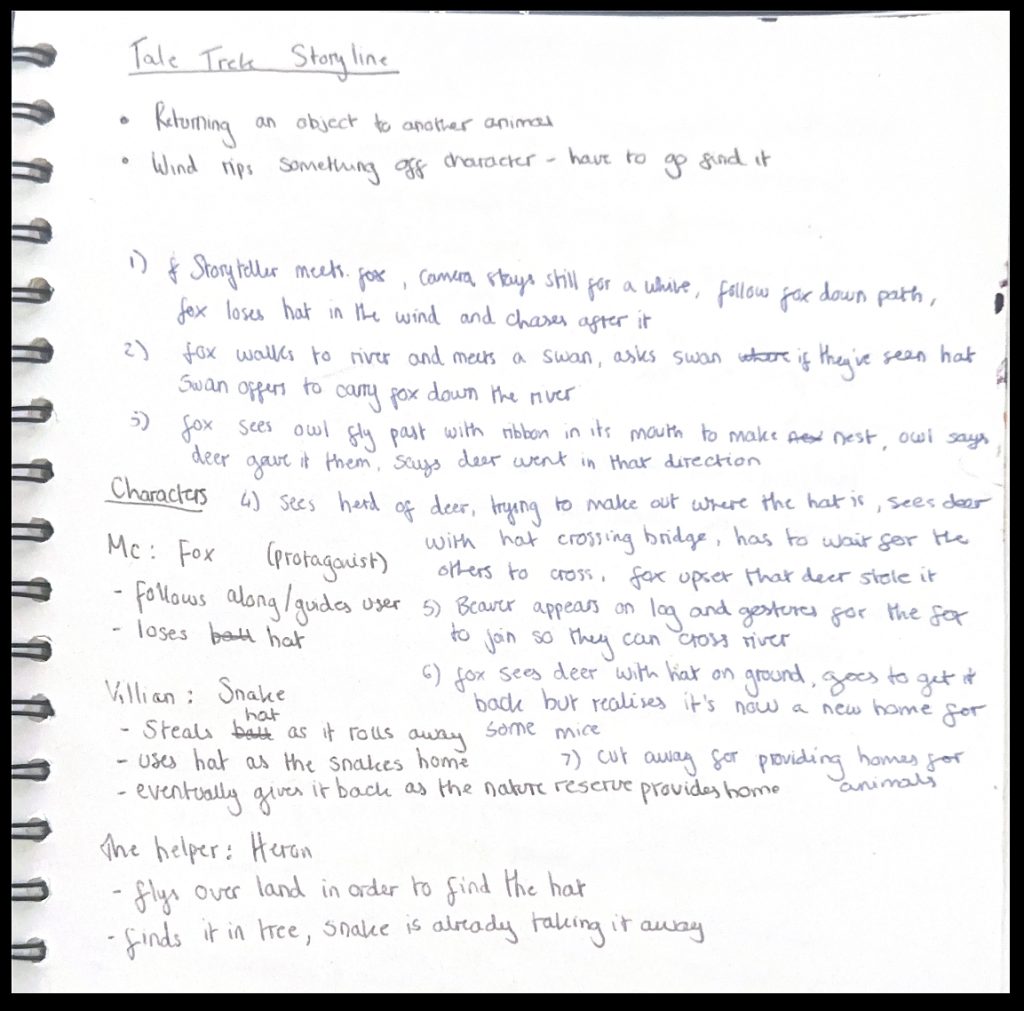 Tale Trek Storyline
• Returning an object to another animal
• Wind rips something off character - have to go find it
1) f Storyteller meets fox, camera stays still for a while, follow fox down path,
fox loses hat in the wind and chases after it
2) fox walks to river and meets a swan, asks swan where if they've seen hat
Swan offers to carry fox down the river
3) fox sees owl fly past with ribbon in its mouth to make nest, owl says
deer gave it them, says deer went in that direction
4) sees herd of deer, trying to make out where the hat is, sees deer
with hat crossing bridge, has to wait for the
others to cross. fox upset that deer stole it
5) Beaver appears on log and gestures for the fox
to join so they can cross river
6) fox sees deer with hat on ground, goes to get it
back but realises it's now a new home for
some mice
7) cut away for providing homes for
animals
Characters
Mc: Fox (protagonist)
- follows along/guides user
- loses ball hat
Villian: Snake
- Steals ball hat as it rolls away
- uses hat as the snakes home
- eventually gives it back as the nature reserve provides home
The helper: Heron
- flys over land in order to find the hat
- finds it in tree, snake is already taking it away